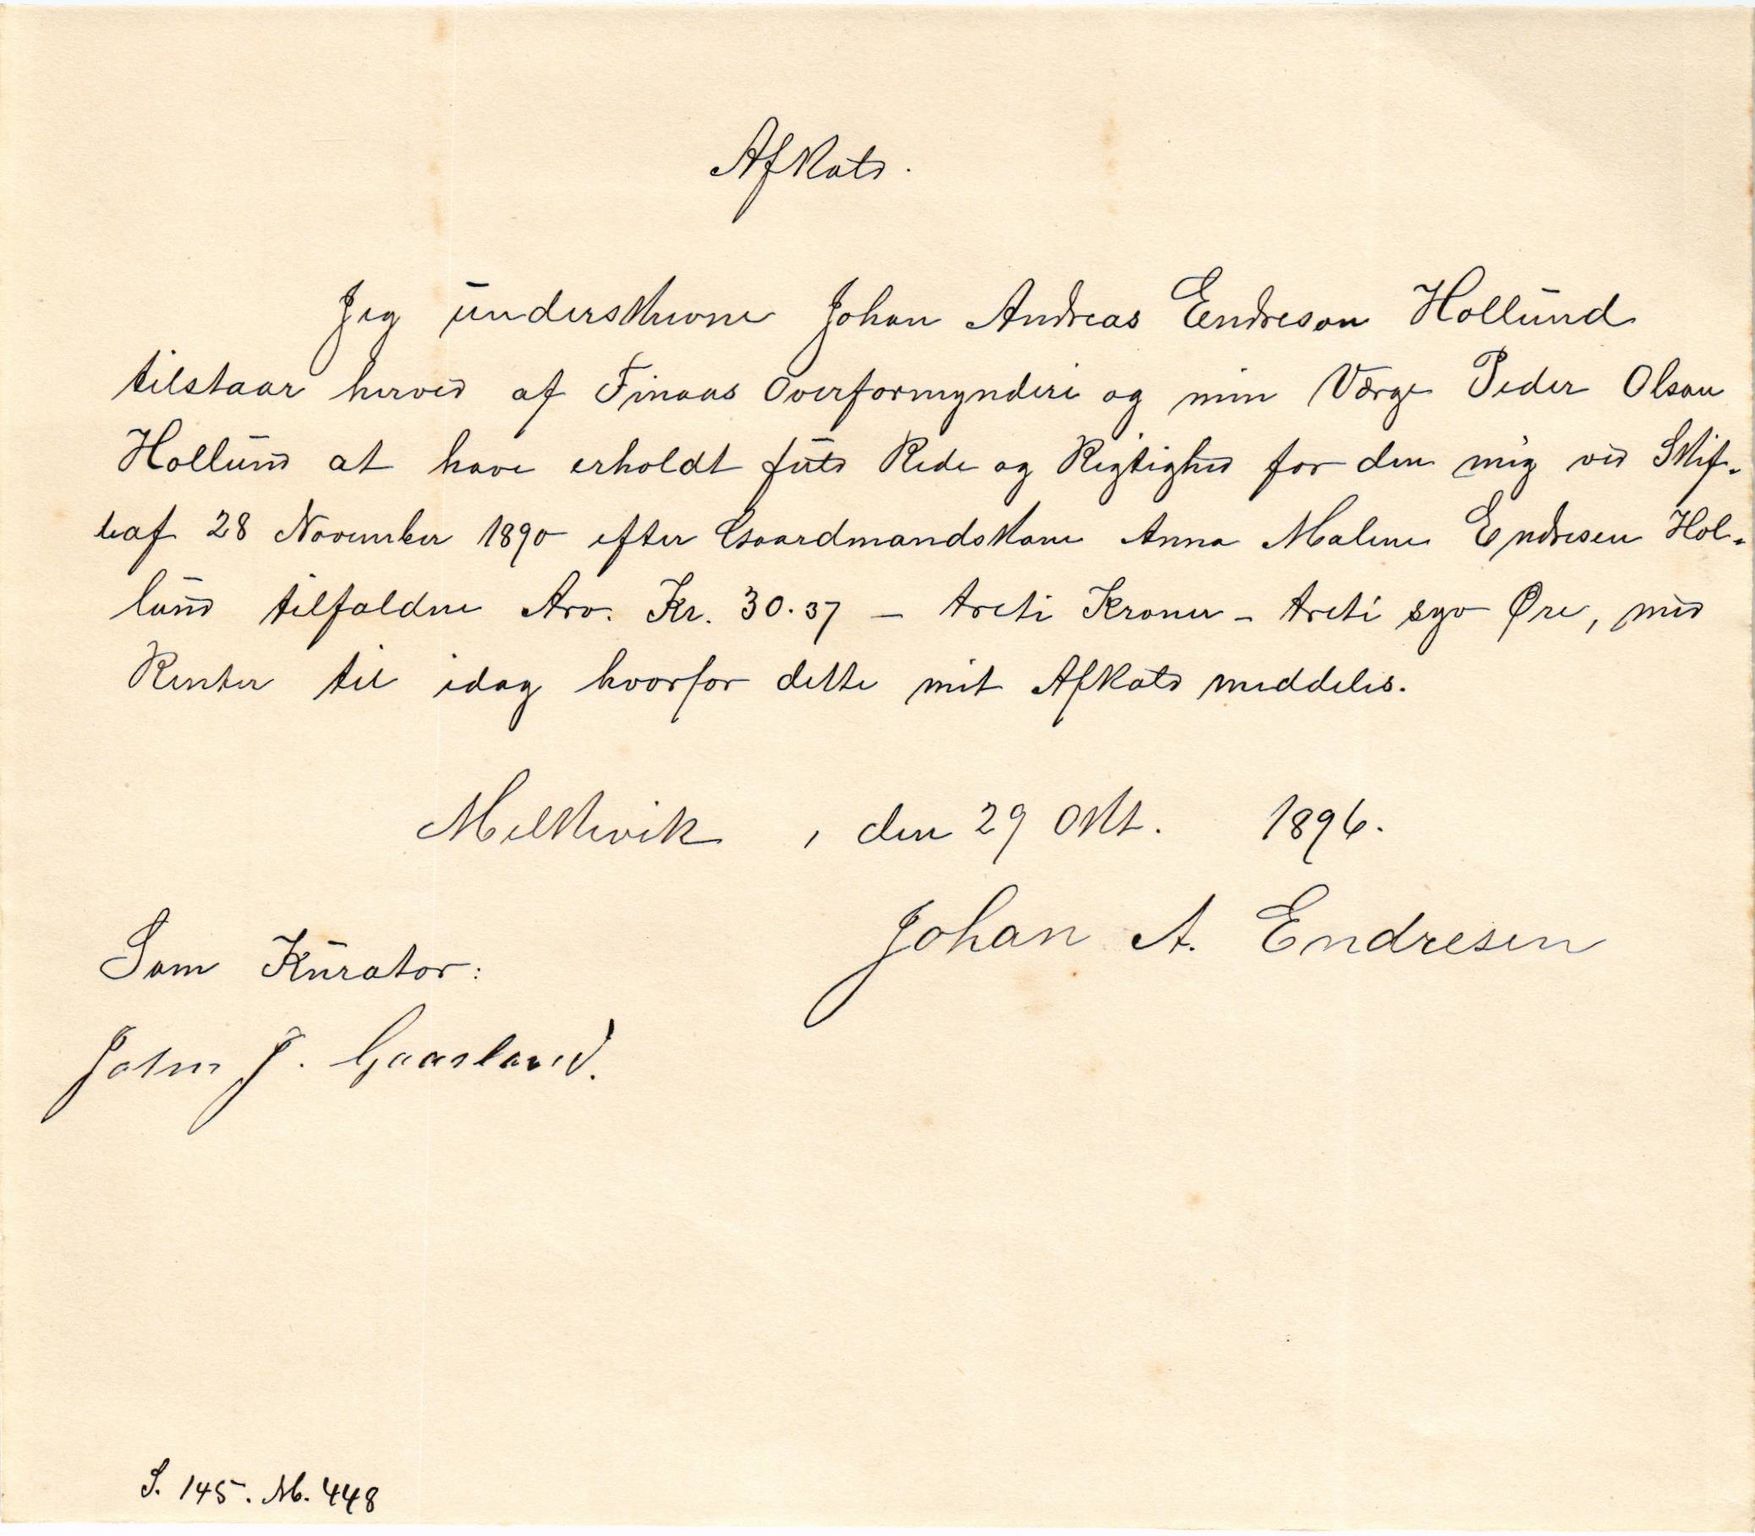 Afkald.
Jeg underskrevne Johan Andreas Endreson Hollund
tilstaar herved af Finaas Overformynderi og min Værge Peder Olson
Hollund at have erholdt fuld Rede og Rigtighed for den mig ved Skif-
te af 28 November 1890 efter Gaardmandskone Anna Malene Endresen Hol-
lund tilfaldne Arv. Kr. 30.37 – treti Kroner – treti syv Øre, med
Renter til idag hvorfor dette mit Afkald meddeles.
Melkevik, den 29 Okt. 1896.
Johan A. Endresen
Som Kurator:
John J. Gaasland.
S. 145. M. 448